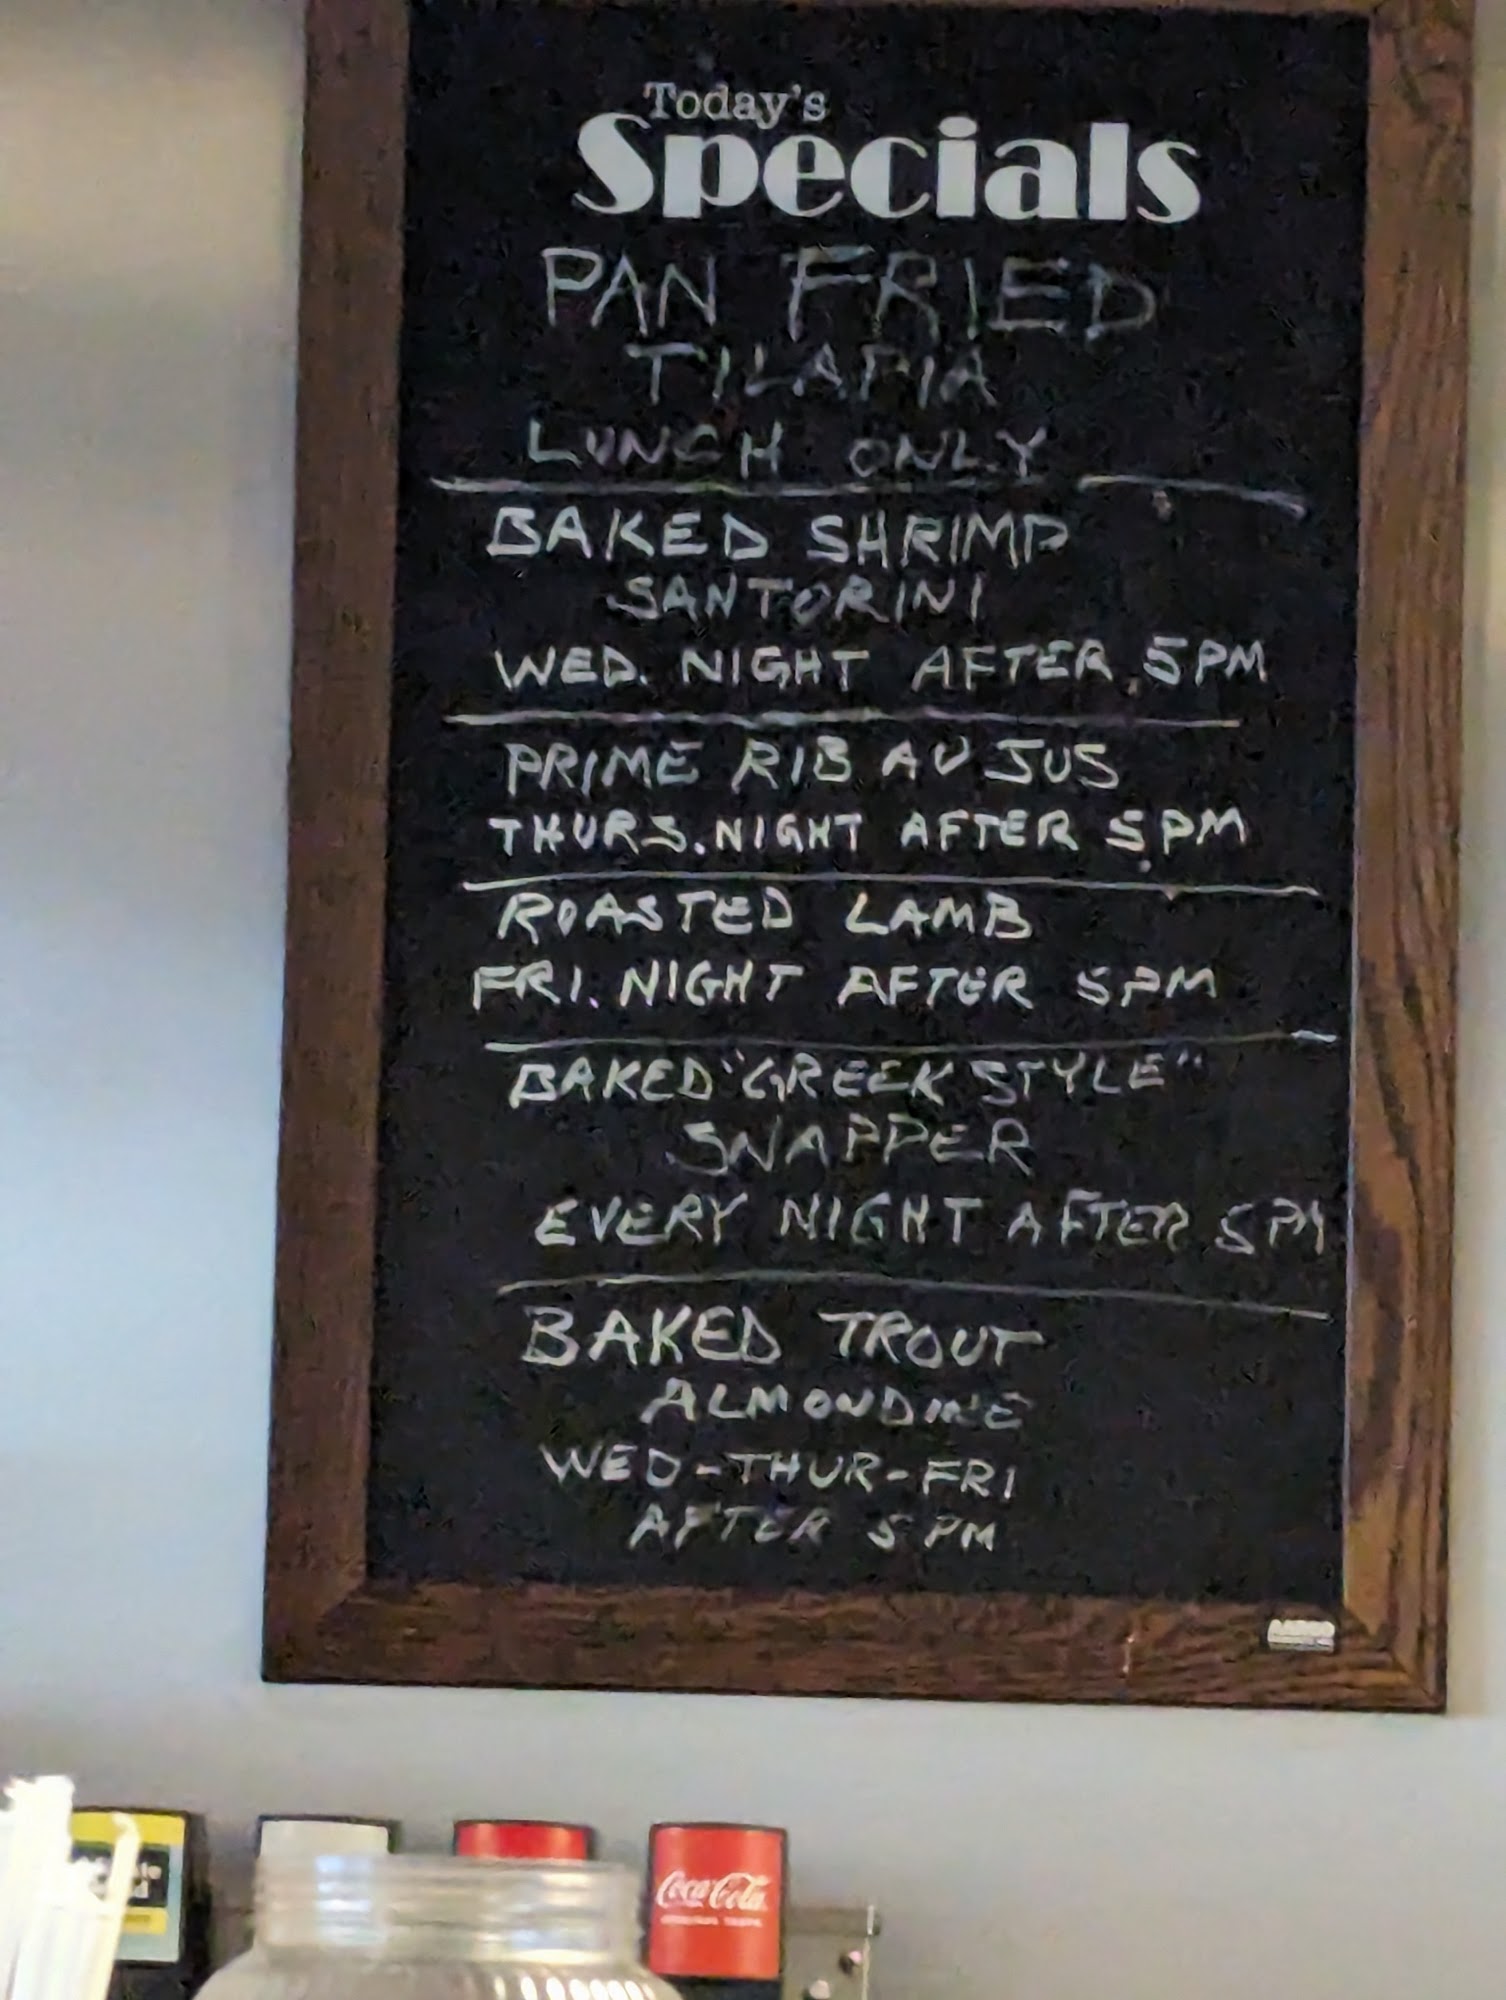 Today's
Specials
PAN FRIED
TILAPIA
LUNCH ONLY
BAKED SHRIMP
SANTORINI
WED. NIGHT AFTER 5PM
PRIME RIB AU JUS
THURS. NIGHT AFTER 5PM
ROASTED LAMB
FRI. NIGHT AFTER 5PM
BAKED "GREEK STYLE"
SNAPPER
EVERY NIGHT AFTER 5PM
BAKED TROUT
ALMONDINE
WED-THUR-FRI
AFTER 5 PM
Coca-Cola